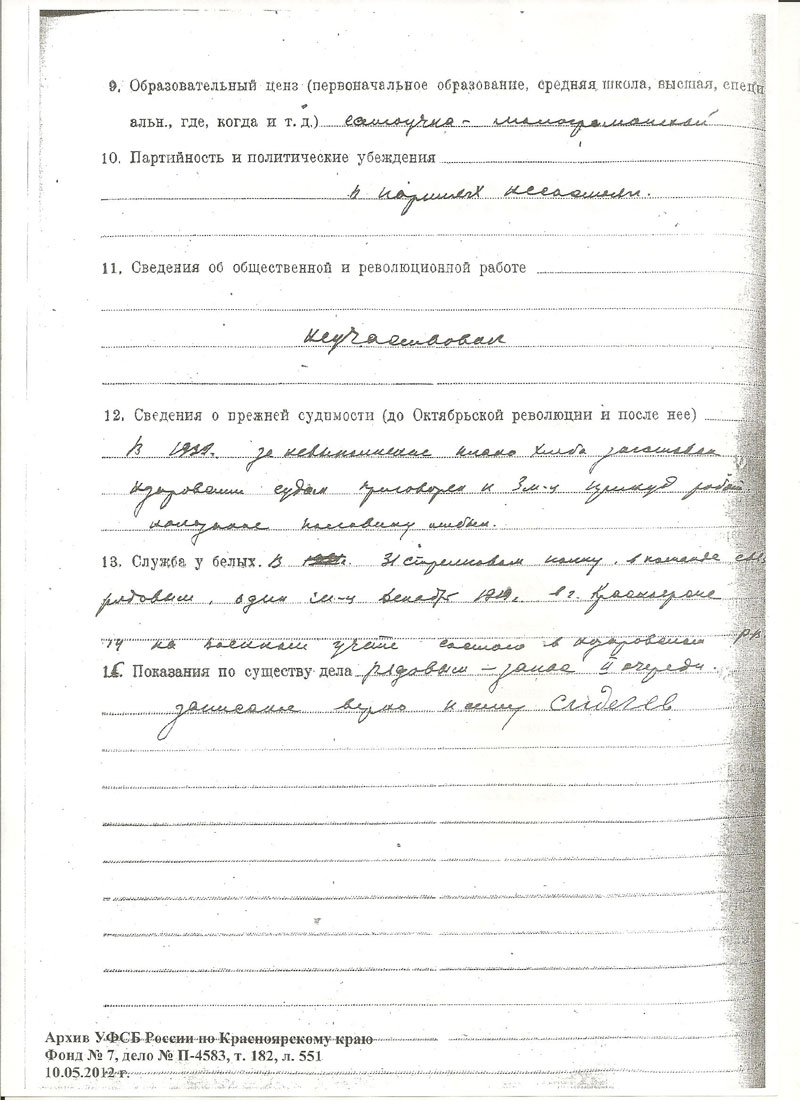 9. Образовательный ценз (первоначальное образование, средняя школа, высшая, специ
альн., где, когда и т. д.) самоучка - малограмотный
10. Партийность и политические убеждения
в партиях несостоял.
11. Сведения об общественной и революционной работе
неучаствовал
12. Сведения о прежней судимости (до Октябрьской революции и после нее)
В за невыполнение плана хлеба заготовок
судом приговорен к 3 м-ц принуд работ.
половину отбыл.
13. Служба у белых. В 31 стрелковом полку, в команде
рядовым, один м-ц Декабрь 1919. в г. Красноярске
14 на военном учете состого в РВ
15. Показания по существу дела рядовым – запас II очереди.
записано верно Сиделев
Архив УФСБ России по Красноярскому краю
Фонд № 7, дело № П-4583, т. 182, л. 551
10.05.2012 г.